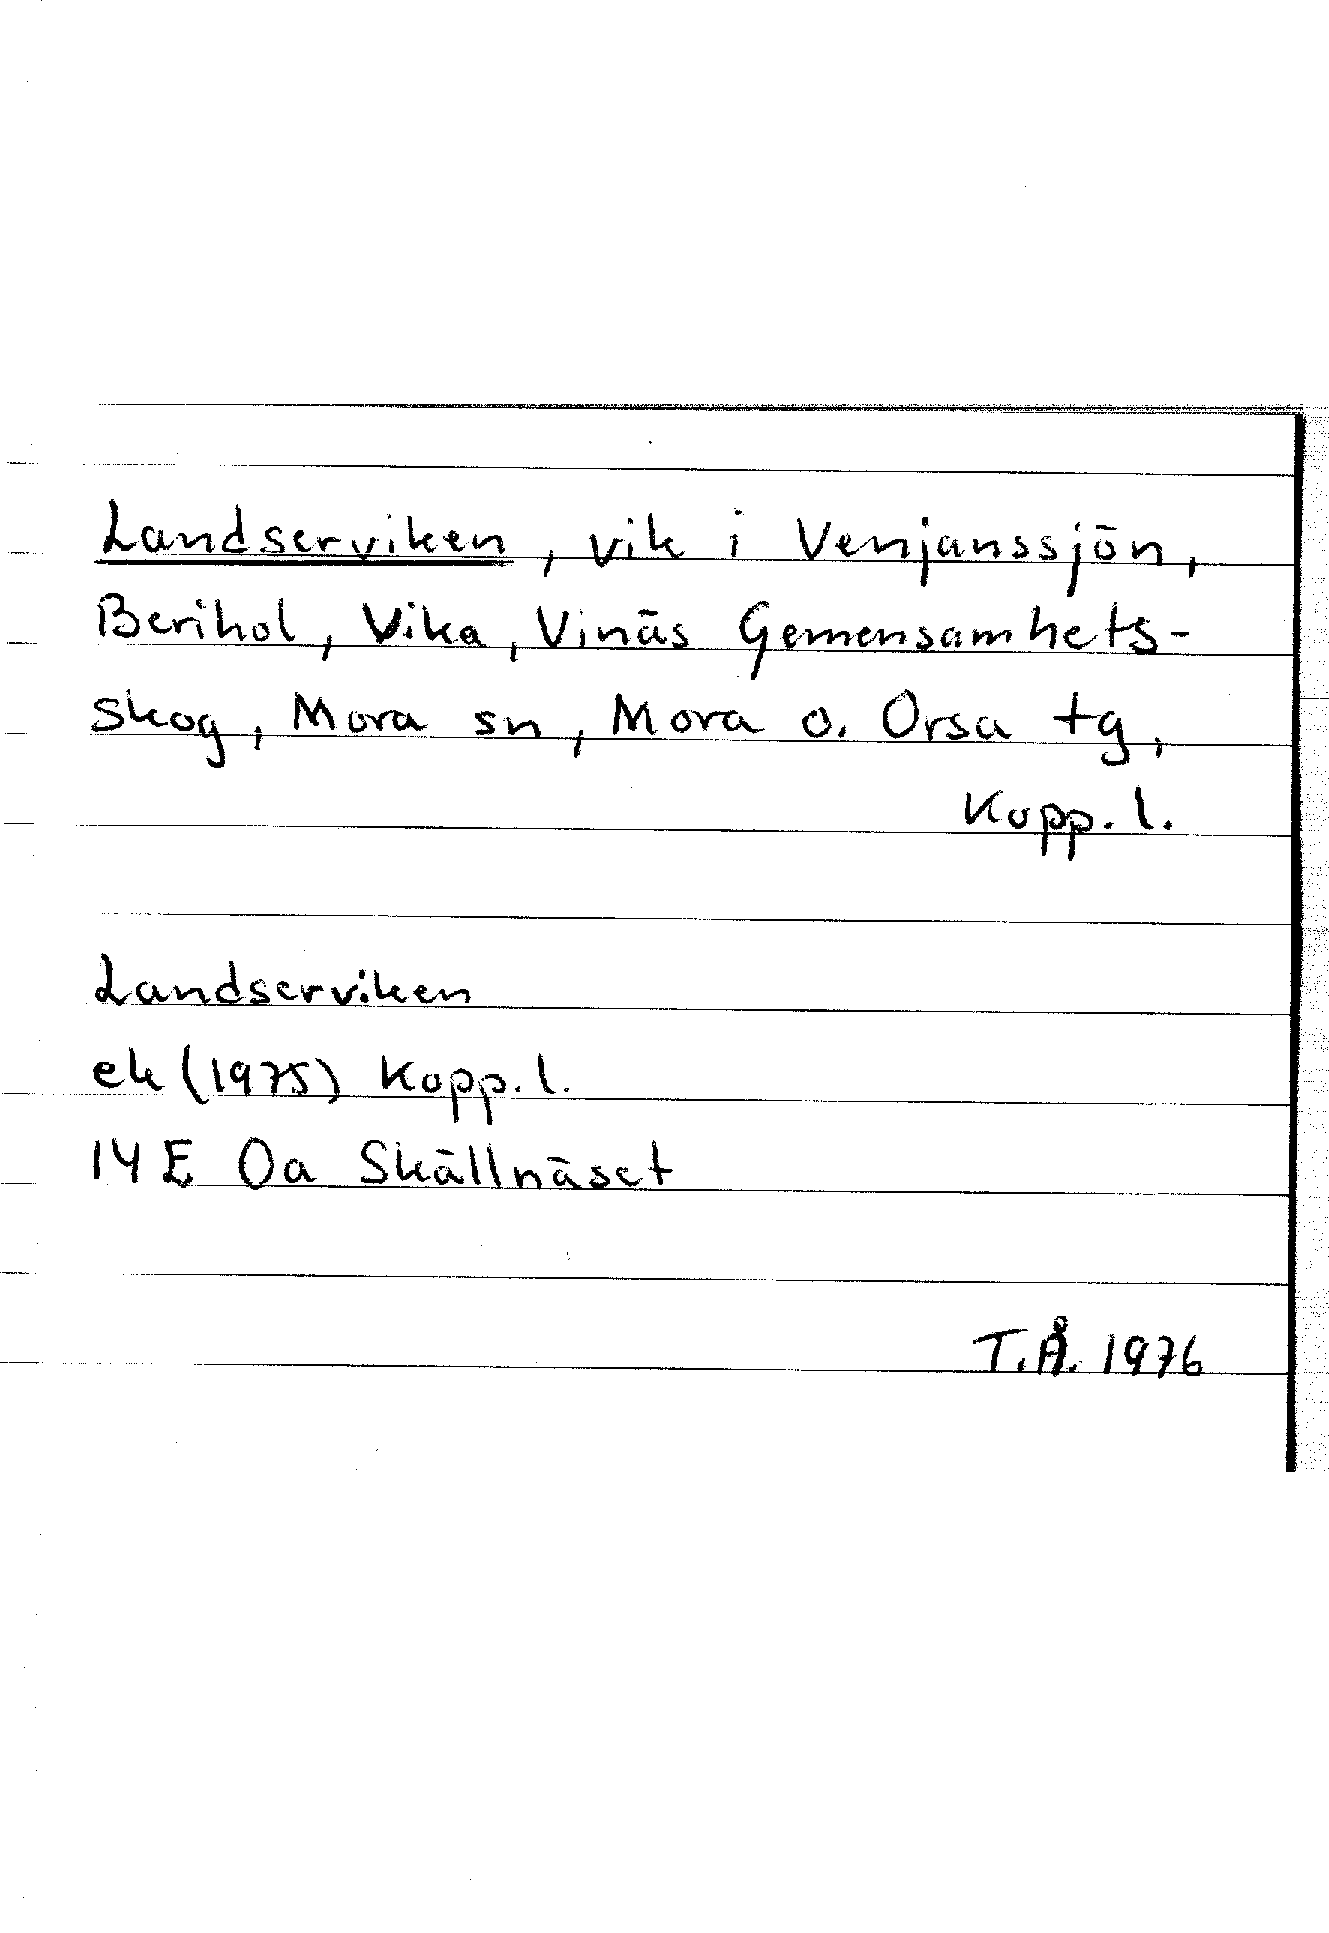 Landserviken, vik i Venjanssjön,
Berihol, Vika, Vinäs Gemensamhets-
skog, Mora sn, Mora o. Orsa tg,
Kopp. l.
Landserviken
ek (1975) Kopp. l.
14 E Oa Skällnäset
T.Å. 1976